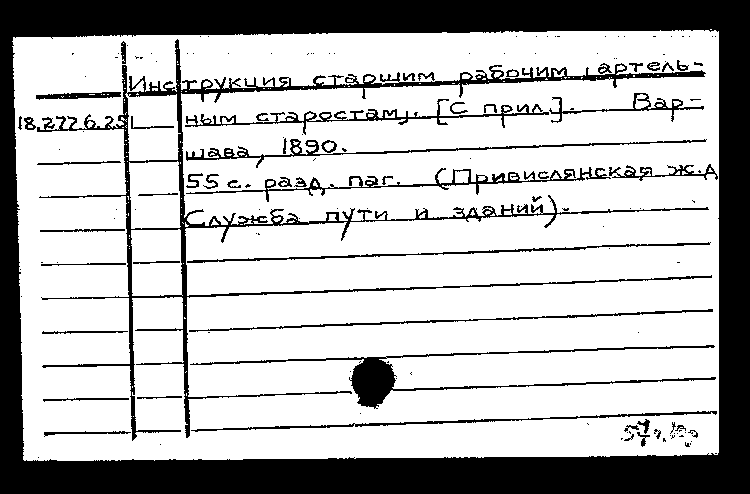 Инструкция старшим рабочим (артель-
18.277.6.251 ным старостам). [С прил.]. Вар-
шава, 1890.
55 с. разд. паг. (Привислянская ж.д
Служба пути и зданий).